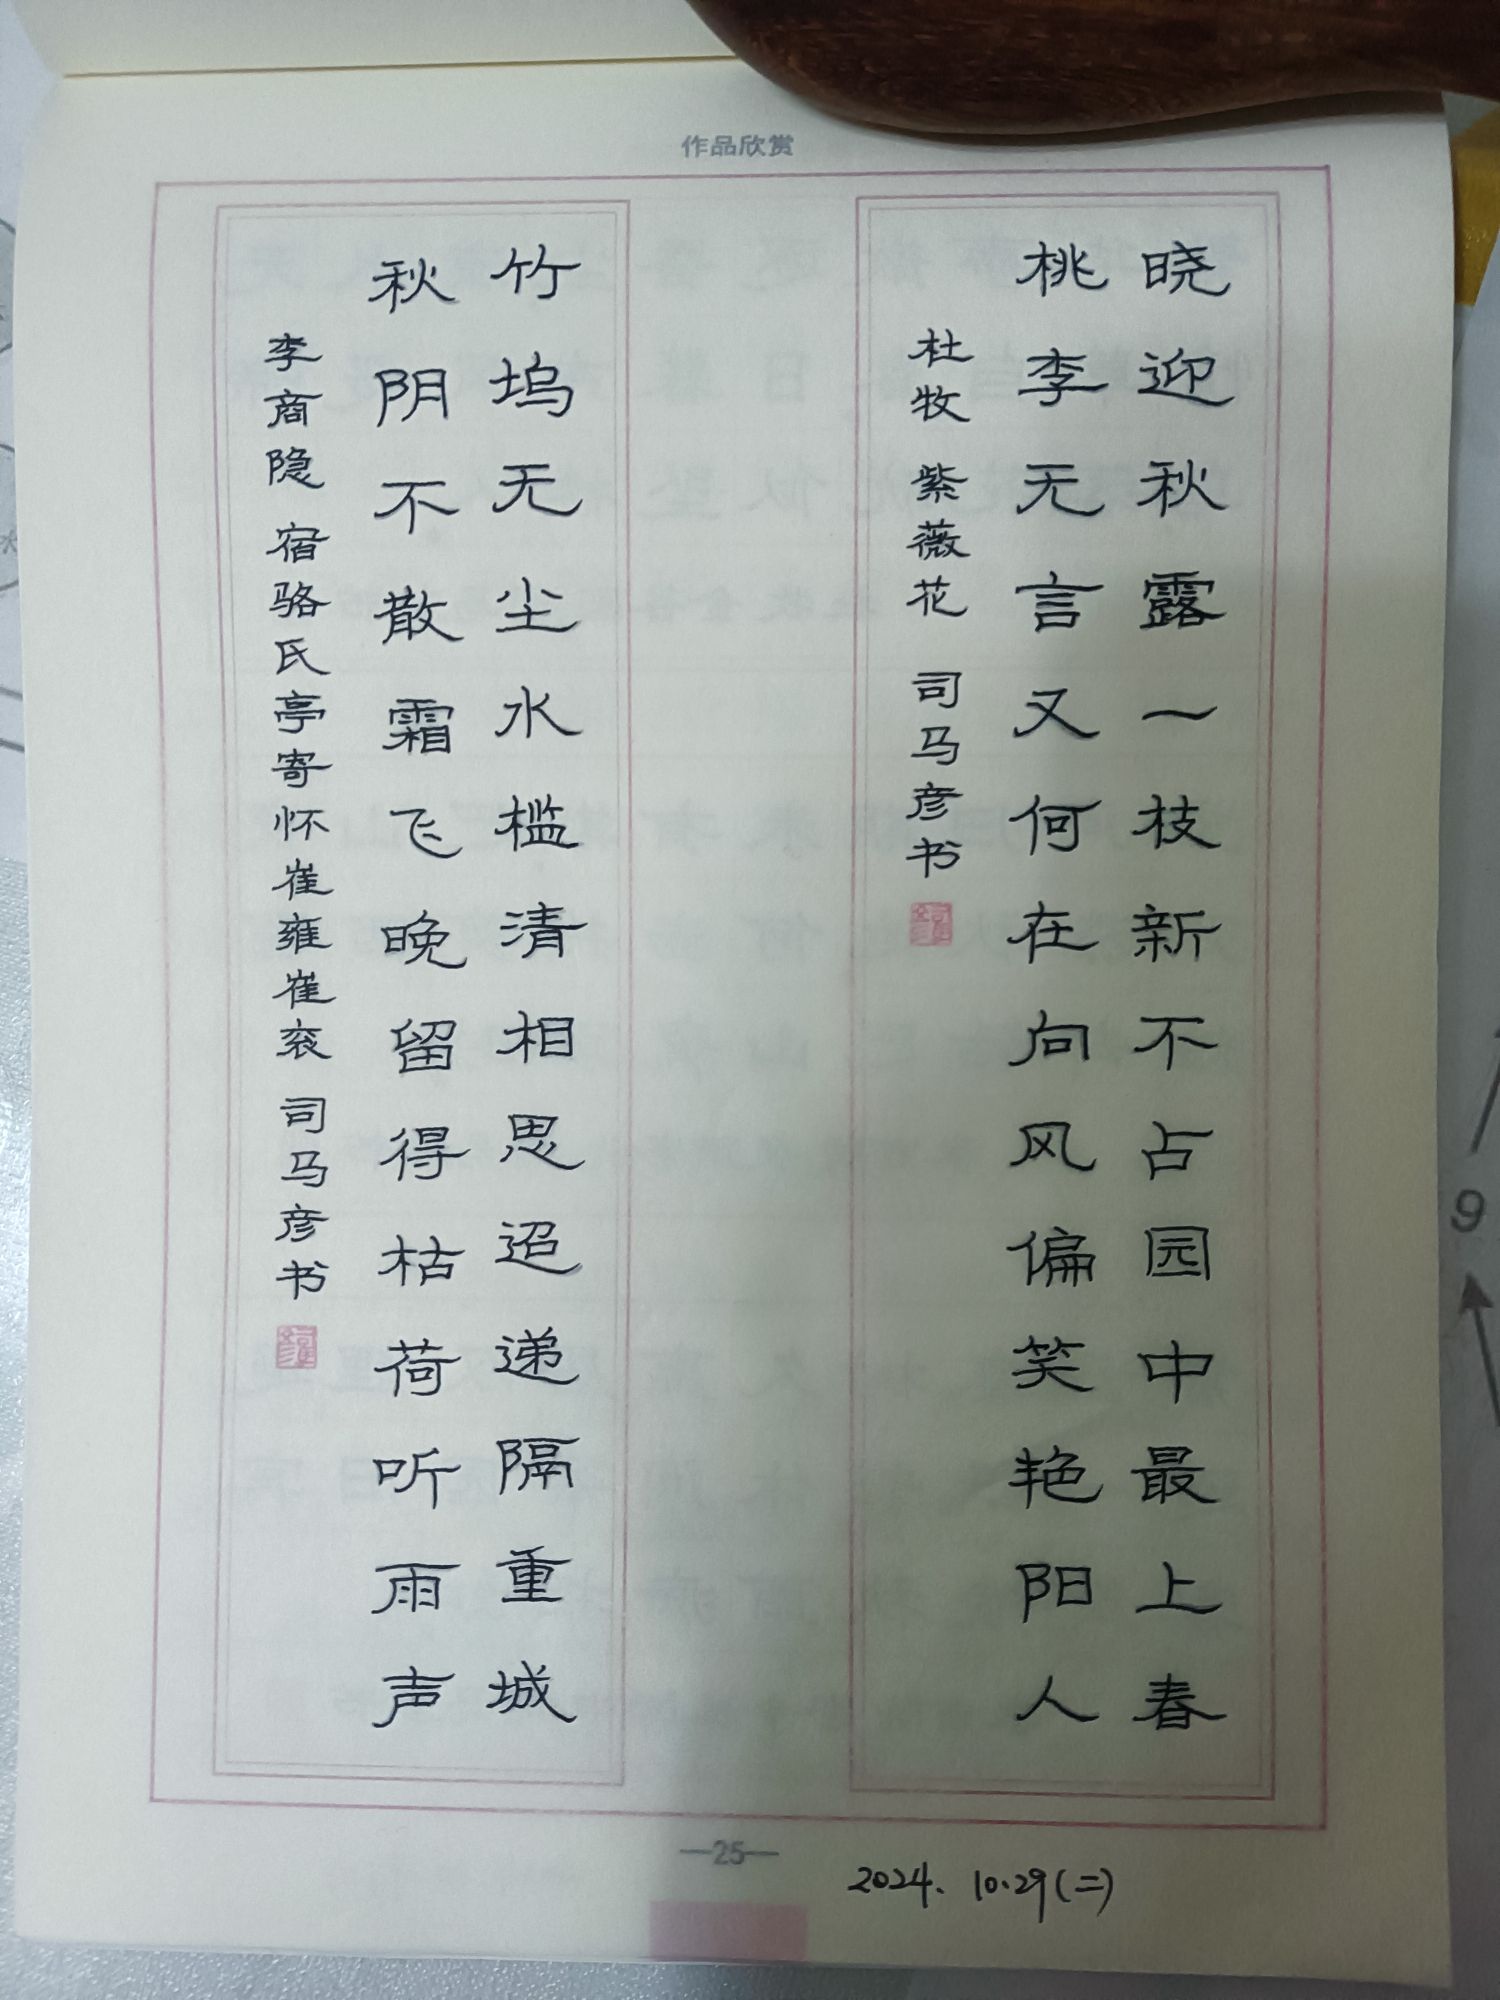 作品欣赏
晓迎秋露一枝新不占园中最上春
桃李无言又何在向风偏笑艳阳人
杜牧 紫薇花 司马彦书
竹坞无尘水槛清相思迢递隔重城
秋阴不散霜飞晚留得枯荷听雨声
李商隐 宿骆氏亭寄怀崔雍崔衮 司马彦书
—25—
2024. 10.29(二)
9